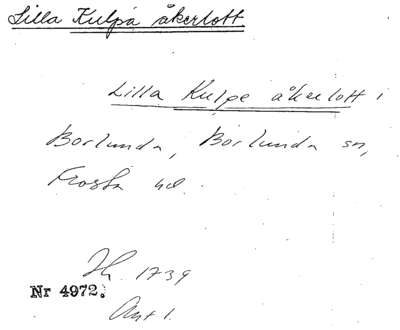 Lilla Kulpa åkerlott
Lilla Kulpe åkerlott i
Borlunda, Borlunda sn,
Frosta hd.
1739
Nr 4972.
Akt 1.